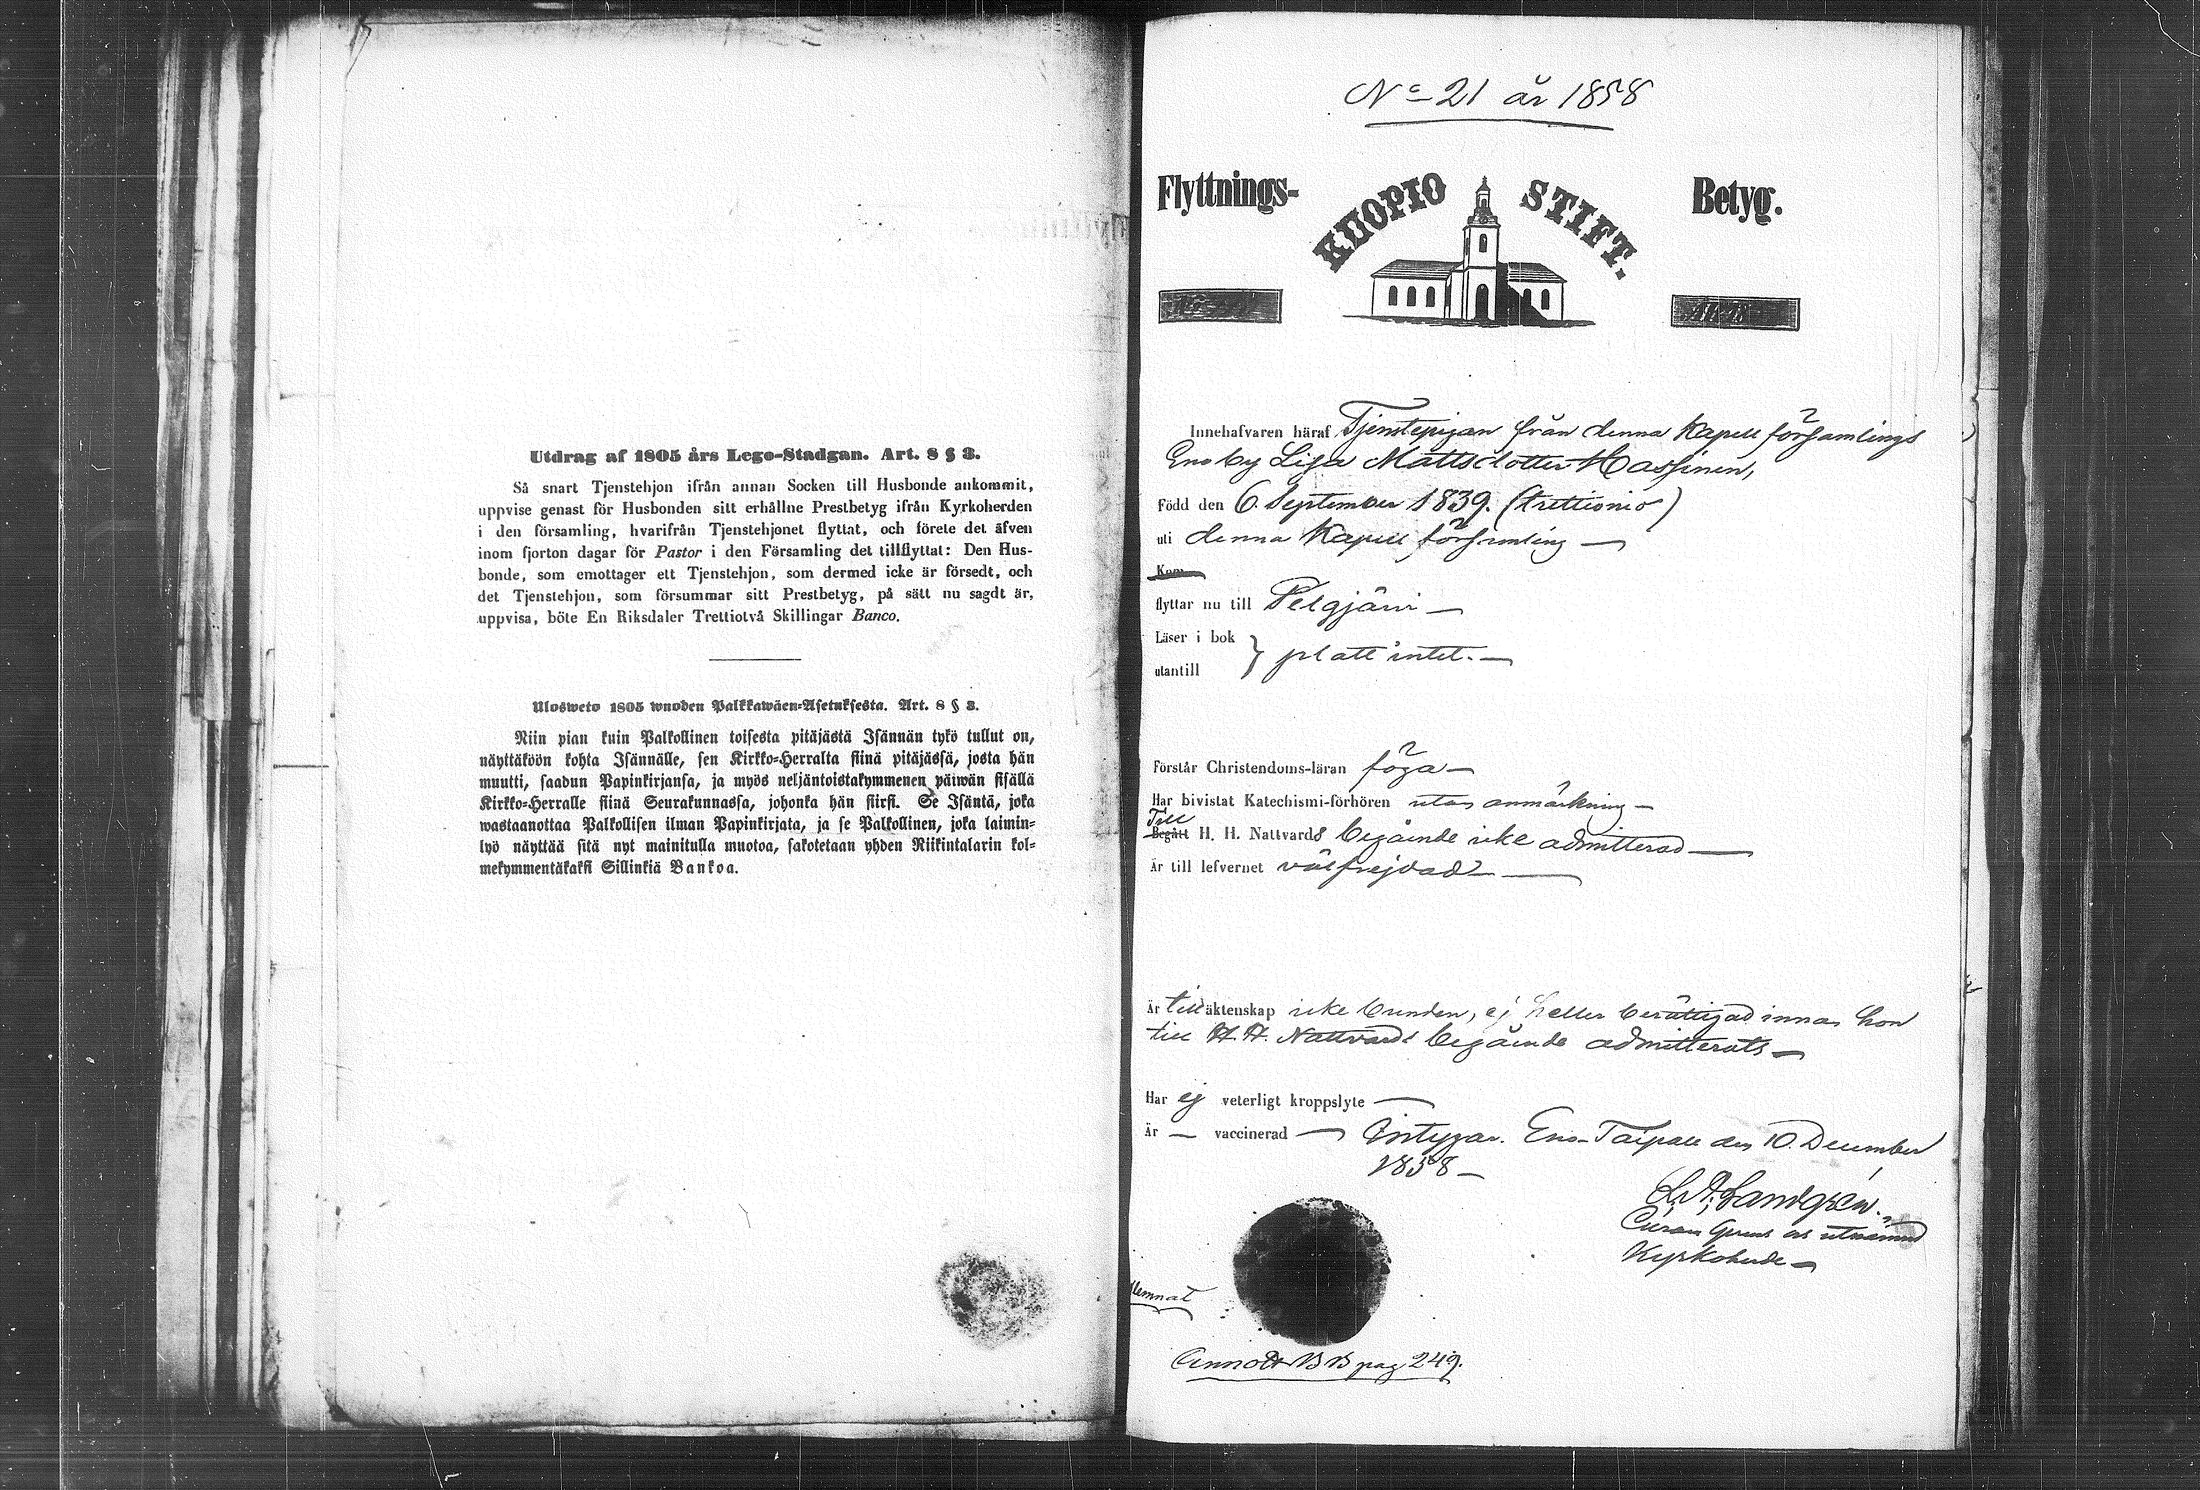 Utdrag af 1805 års Lego-Stadgan. Art. 8 § 3.
Så snart Tjenstehjon ifrån annan Socken till Husbonde ankommit,
uppvise genast för Husbonden sitt erhållne Prestbetyg ifrån Kyrkoherden
i den församling, hvarifrån Tjenstehjonet flyttat, och förete det äfven
inom fjorton dagar för Pastor i den Församling det tillflyttat: Den Hus-
bonde, som emottager ett Tjenstehjon, som dermed icke är försedt, och
det Tjenstehjon, som försummar sitt Prestbetyg, på sätt nu sagdt är,
uppvisa, böte En Riksdaler Trettiotvå Skillingar Banco.
Ulosweto 1805 wuoden Palkkawäen-Asetuksesta. Art. 8 § 3.
Niin pian kuin Palkollinen toisesta pitäjästä Isännän tykö tullut on,
näyttäköön kohta Isännälle, sen Kirkko-Herralta siinä pitäjässä, josta hän
muutti, saadun Papinkirjansa, ja myös neljäntoistakymmenen päiwän sisällä
Kirkko-Herralle siinä Seurakunnassa, johonka hän siirsi. Se Isäntä, joka
wastaanottaa Palkollisen ilman Papinkirjata, ja se Palkollinen, joka laimin-
lyö näyttää sitä nyt mainitulla muotoa, sakotetaan yhden Riikintalarin kol-
mekymmentäkaksi Sillinkiä Bankoa.
No 21 år 1858
Flyttnings- KUOPIO STIFT. Betyg.
Innehafvaren häraf Tjenstepigan från denna Kapell församlings
Eno by Lisa Mattsdotter Hassinen,
Född den 6. September 1839. (trettionio)
uti denna Kapell församling —
Kom
flyttar nu till Pelgjärvi —
Läser i bok
utantill } platt intet. —
Förstår Christendoms-läran föga —
Har bivistat Katechismi-förhören utan anmärkning —
Till
Begått H. H. Nattvards begående icke admitterad —
Är till lefvernet välfrejdad —
Är till äktenskap icke bunden, ej heller berättigad innan hon
till H. H. Nattvards begående admitterats —
Har ej veterligt kroppslyte —
Är — vaccinerad — Intygar. Eno-Taipale den 10. December
1858 —
Sandgrén.
utnämnd
Kyrkoherde —
Annot BB pag 249.